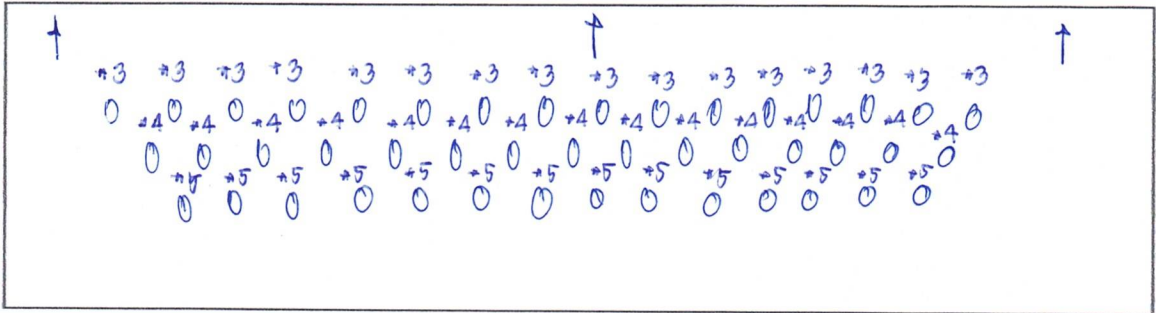 ↑ ↑ ↑
*3 *3 *3 *3 *3 *3 *3 *3 *3 *3 *3 *3 *3 *3 *3 *3
0 0 0 0 0 0 0 0 0 0 0 0 0 0 0 0
*4 *4 *4 *4 *4 *4 *4 *4 *4 *4 *4 *4 *4 *4 *4
0 0 0 0 0 0 0 0 0 0 0 0 0 0 0
*5 *5 *5 *5 *5 *5 *5 *5 *5 *5 *5 *5 *5 *5
0 0 0 0 0 0 0 0 0 0 0 0 0 0